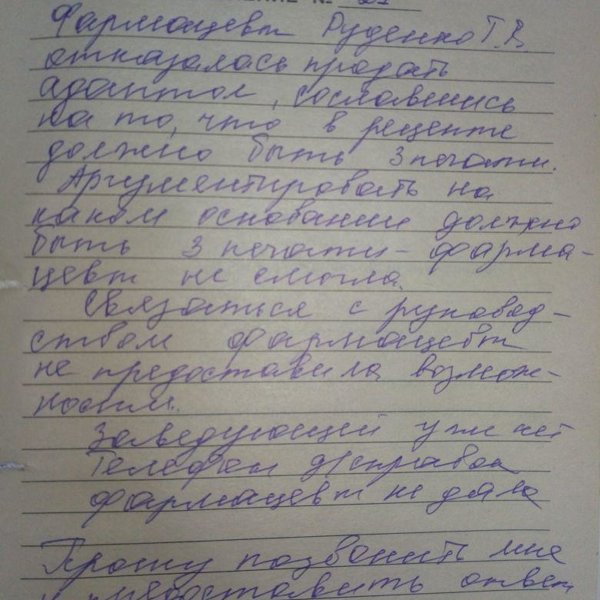 № 21
Фармацевт Руденко Т.В.
отказалась продать
адаптол, сославшись
на то, что в рецепте
должно быть 3 печати.
Аргументировать на
каком основании должно
быть 3 печати - фарма-
цевт не смогла.
Связаться с руковод-
ством фармацевт
не предоставила возмож-
ности.
Заведующей уже нет
Телефон
фармацевт не дала
Прошу позвонить мне
и предоставить ответ